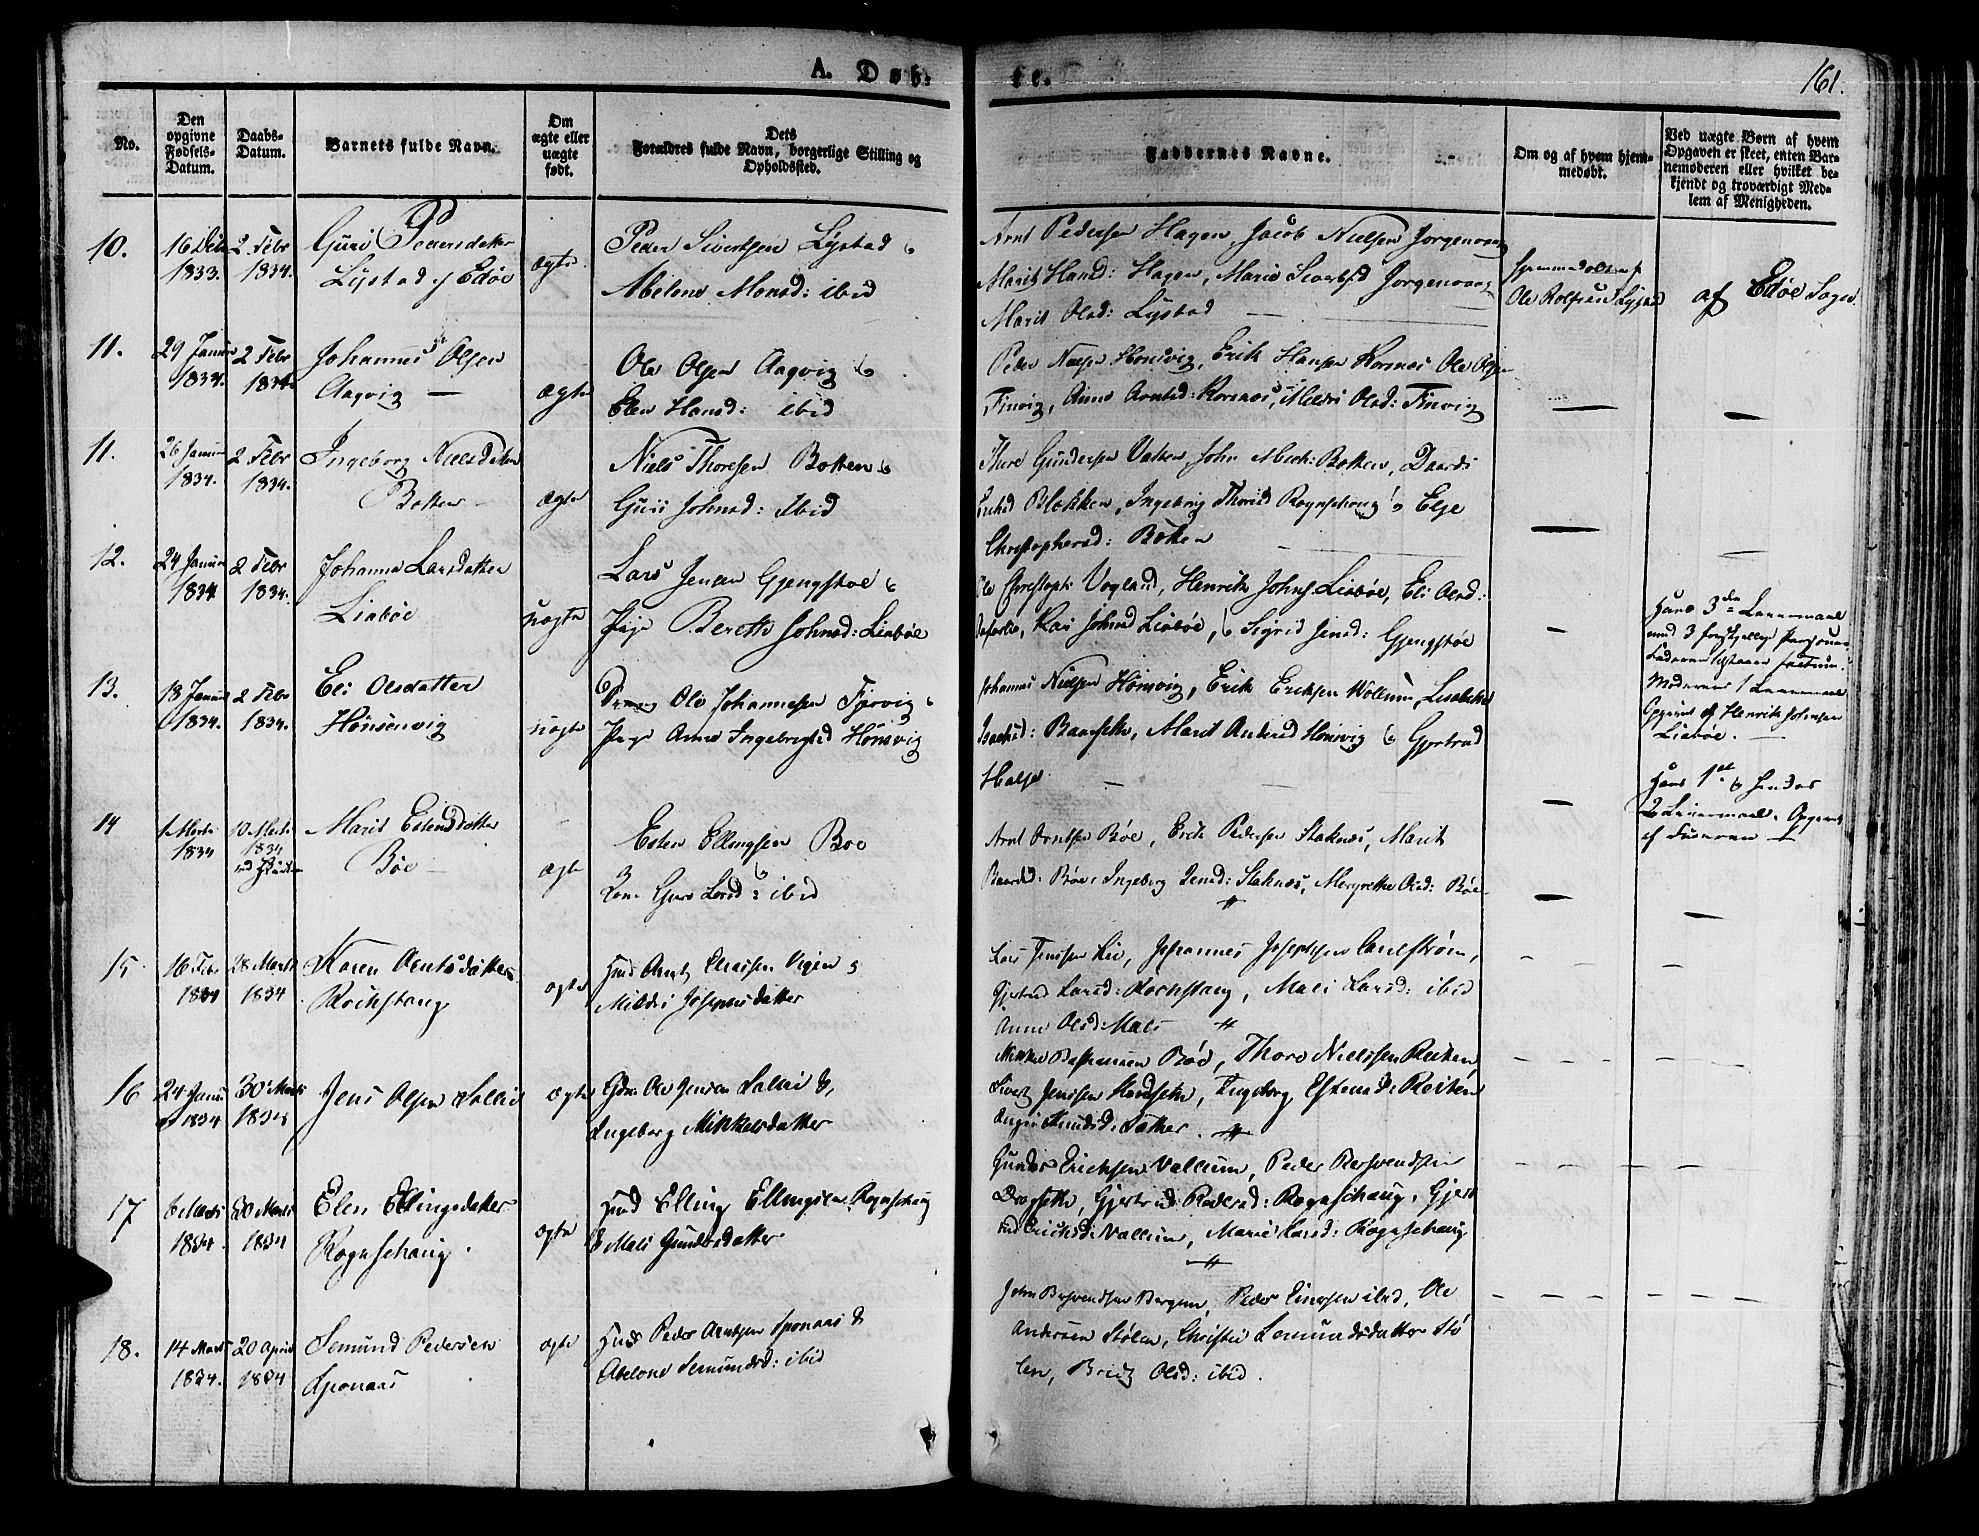 A. Døb-
te.
161.
No.
Den
opgivne
Fødsels-
Datum.
Daabs-
Datum.
Barnets fulde Navn.
Om
ægte eller
uægte
født.
Dets
Forældres fulde Navn, borgerlige Stilling og
Opholdssted.
Faddernes Navne.
Om og af hvem hjem-
medøbt.
Ved uægte Børn af hvem
Opgaven er skeet, enten Bar-
nemoderen eller hvilket be-
kjendt og troværdigt Med-
lem af Menigheden.
10.
16
1833.
2 Febr
1834.
Guri Pedersdatter
Lystad af Edøe
ægte
Peder Sivertsen Lystad
Abelone Monsd: ibid
Arnt Pedersen Hagen, Jacob Nielsen Jorgenvaag
Marit Hansd: Hagen, Marie Sivertsd Jorgenvaag
Marit Olsd: Lystad
Ole Rolfsen Lystad
af Edøe Sogn
11.
29 Januar
1834.
2 Febr
1834
Johannes Olsen
Aagvig
ægte
Ole Olsen Aagvig
Elen Hansd: ibid
Peder Nielsen Honsvig, Erik Hansen Korsnes Ole Olsen
Finvig, Anne Arntsd: Korsnes, Mildri Olsd: Finvig
11.
26 Januar
1834.
2 Febr
1834.
Ingeborg Nielsdatter
Botten
ægte
Niels Thoresen Botten
Guri Johnsd: Ibid
Thore Gundersen Vatten John Botten,
Blakken, Ingebrig Thoresd Rognschoug Else
Christophersd: Botten
12.
24 Januar
1834
2 Febr
1834.
Johanna Larsdatter
Liabøe
uægte
Lars Jensen Gjengstøe
Pige Berette Johnsd: Liabøe
Ole Christoph: Vogland, Henrik Johns Liabøe, Eli Olsd:
Kari Johnsd Liabøe, Sigrid Jensd: Gjengstøe
Hans 3die Leiermaal
med 3 forskjellige Personer
Moderens 1 Leiermaal
Opgivet af Henrik Johnsen
Liabøe.
13.
13 Januar
1834.
2 Febr
1834.
Eli Olsdatter
Hönsenvig
uægte
Ole Johannesen Fjervig
Pige Anne Ingebregtsd Hönsvig
Johannes Nielsen Hönsvig, Erik Eriksen Wollum,
Baardsd: Baarseth, Marit Andersd Hönsvig Gjertrud
Halse
Hans 1ste Hendes
2 Leiermaal. Opgivet
af Faderen
14
1 Marts
1834
10 Marts
1834
Marit Estensdatter
Böe
ægte
Esten Ellingsen Boe
Guro Larsd: ibid
Arnt Arntsen Böe, Erik Pedersen Staknes, Marit
Baardsd. Böe, Ingeborg Jensd: Staknes, Margrethe Olsd: Böe
15
16 Febr
1834
28 Marts
1834
Karen Arntsdatter
Rochstang
ægte
Husd Arnt
Mildri Josepsdatter
Lars Jenssen Lie, Johannes Josephsen
Gjertrud Larsd: Rochstang, Mali Larsd: ibid
Anne Olsd: Mals
16
24 Januar
1834
30 Marts
1834
Jens Olsen Sollie
ægte
Gdm Ole Jensen Sollie &
Ingeborg Mikkelsdatter
Mikkel Bastiansen Böe, Thore Nielssen Reiten
Sivert Jenssen Handseth, Ingeborg Estensd: Reiten
Knudsd: Sæther.
17
6 Marts
1834.
30 Marts
1834
Elen Ellingsdatter
Rognschaug
ægte
Husd Elling Ellingsen Rognschaug
& Mali Gundersdatter
Gunder Erichsen Vallum, Peder
Dragseth, Gjertrud Pedersd: Rognschaug, Gjert
rud Erichsd: Vallum, Marie Larsd: Rognschaug
18.
14 Marts
1834.
20 April
1834
Semund Pedersen
Sponaas
ægte
Husd Peder Arntsen Sponaas &
Abelone Semundsd: ibid
John Bergem, Peder Einersen ibid, Ole
Andersen Stölen, Christie Semundsdatter Stö
len, Brit Olsd: ibid.